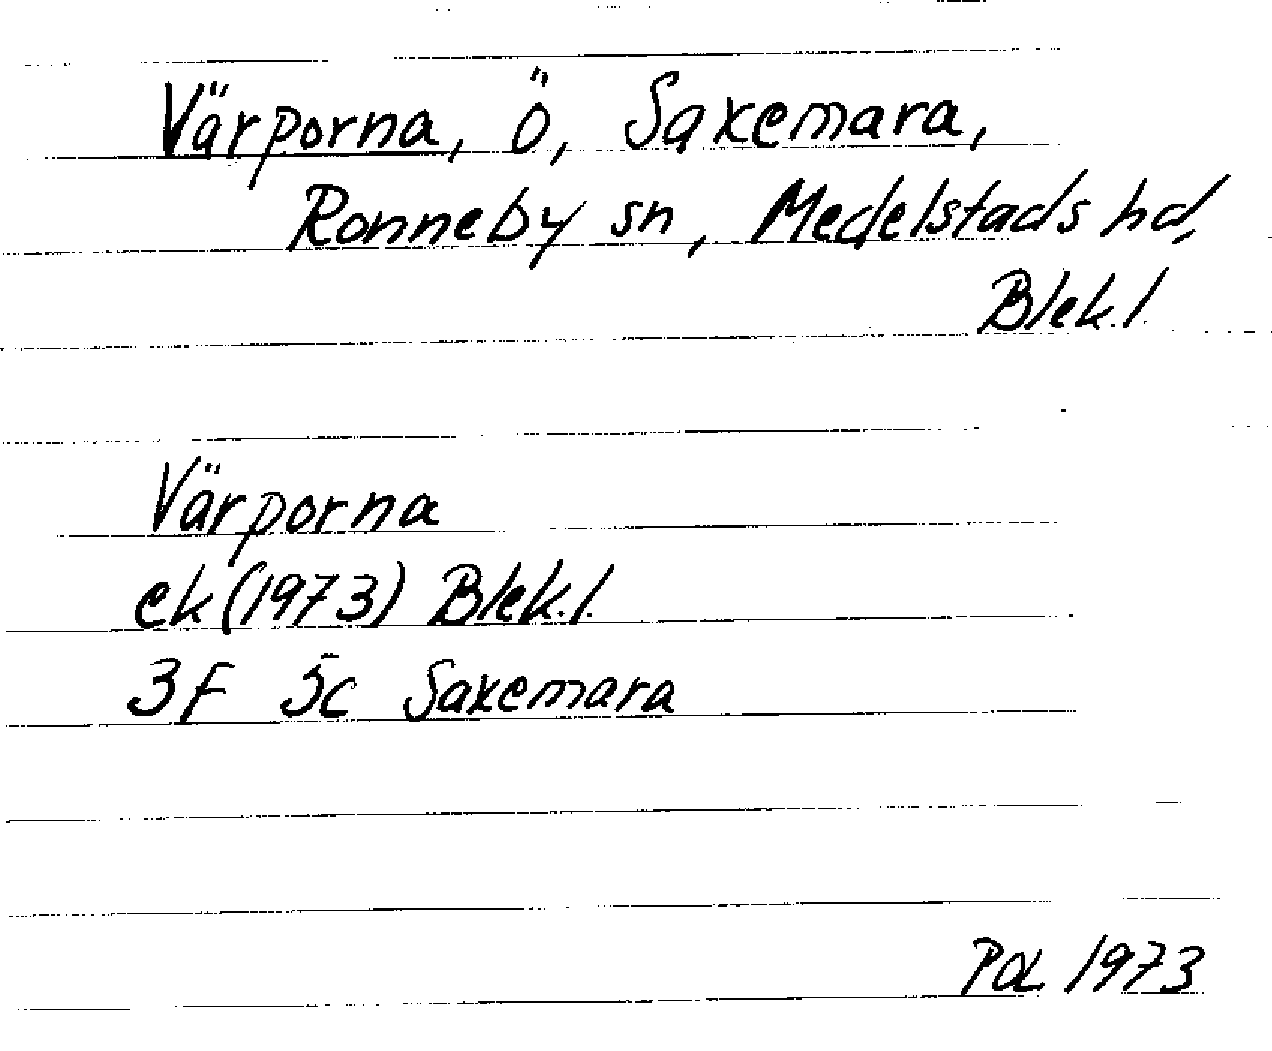 Värporna, Ö, Saxemara,
Ronneby sn, Medelstads hd,
Blek. l.
Värporna
ek (1973) Blek. l.
3F 5c Saxemara
1973